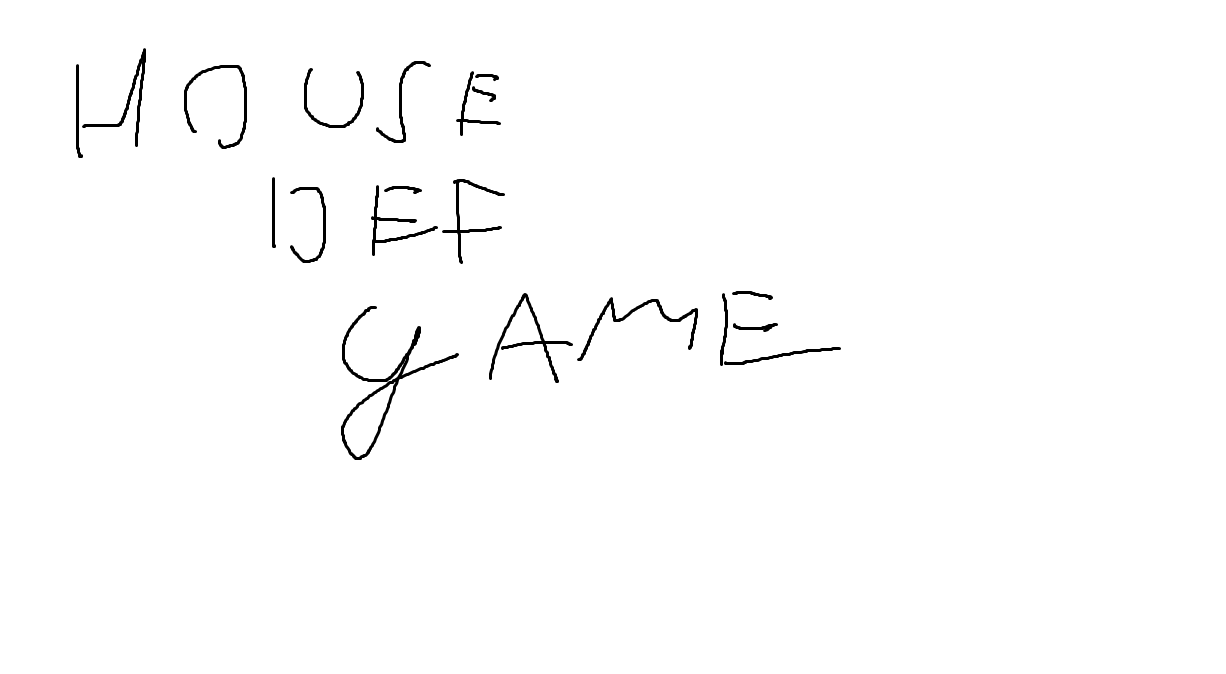 HOUSE
DEF
GAME